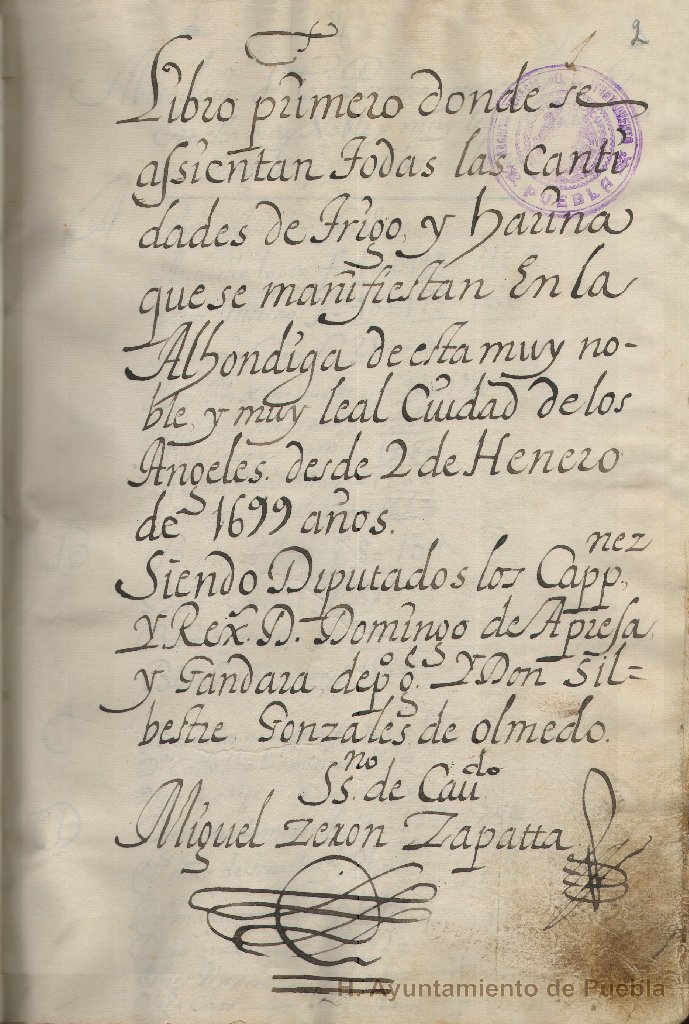 2
Libro primero donde se
assientan Todas las canti
dades de Trigo, y harina
que se manifiestan En la
Alhondiga de esta muy no-
ble, y muy leal Ciudad de los
Angeles. desde 2 de Henero
de 1699 años.
Siendo Diputados los Cappnez
Y Rex. D. Domingo de Apresa,
y Gandara, depo go. Y Don Sil=
bestre, Gonzales, de olmedo.
Ssno. de Caudo
Miguel Zeron Zapatta
PUEBLA
H. Ayuntamiento de Puebla